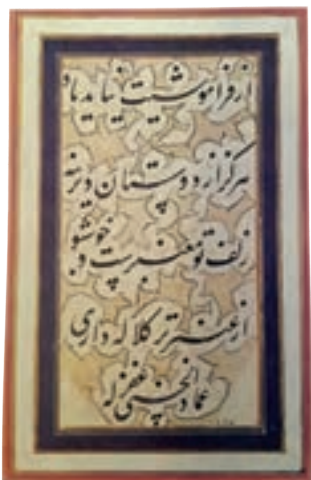 از فراموشیت نیاید یاد
هرگز از دوستان دیرینه
زلف تو عنبرست و خوشبو
از عنبر تر کلاله داری
عماد الحسنی غفر له